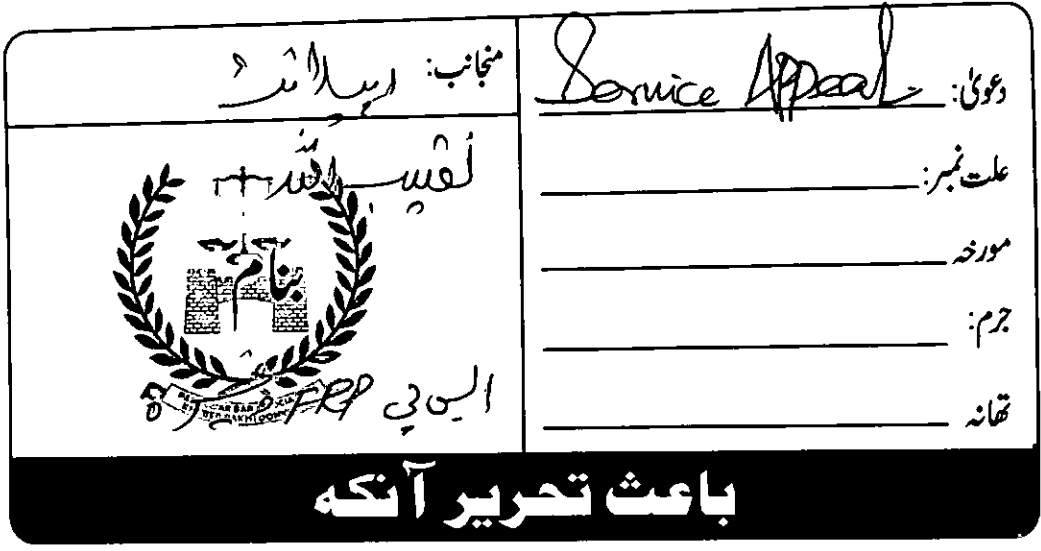 دعویٰ: Service Appeal
علت نمبر:
مورخہ
جرم:
تھانہ
منجانب: اپیلانٹ
نقیب اللہ
بنام
ایس پی FRP
باعث تحریر آنکہ